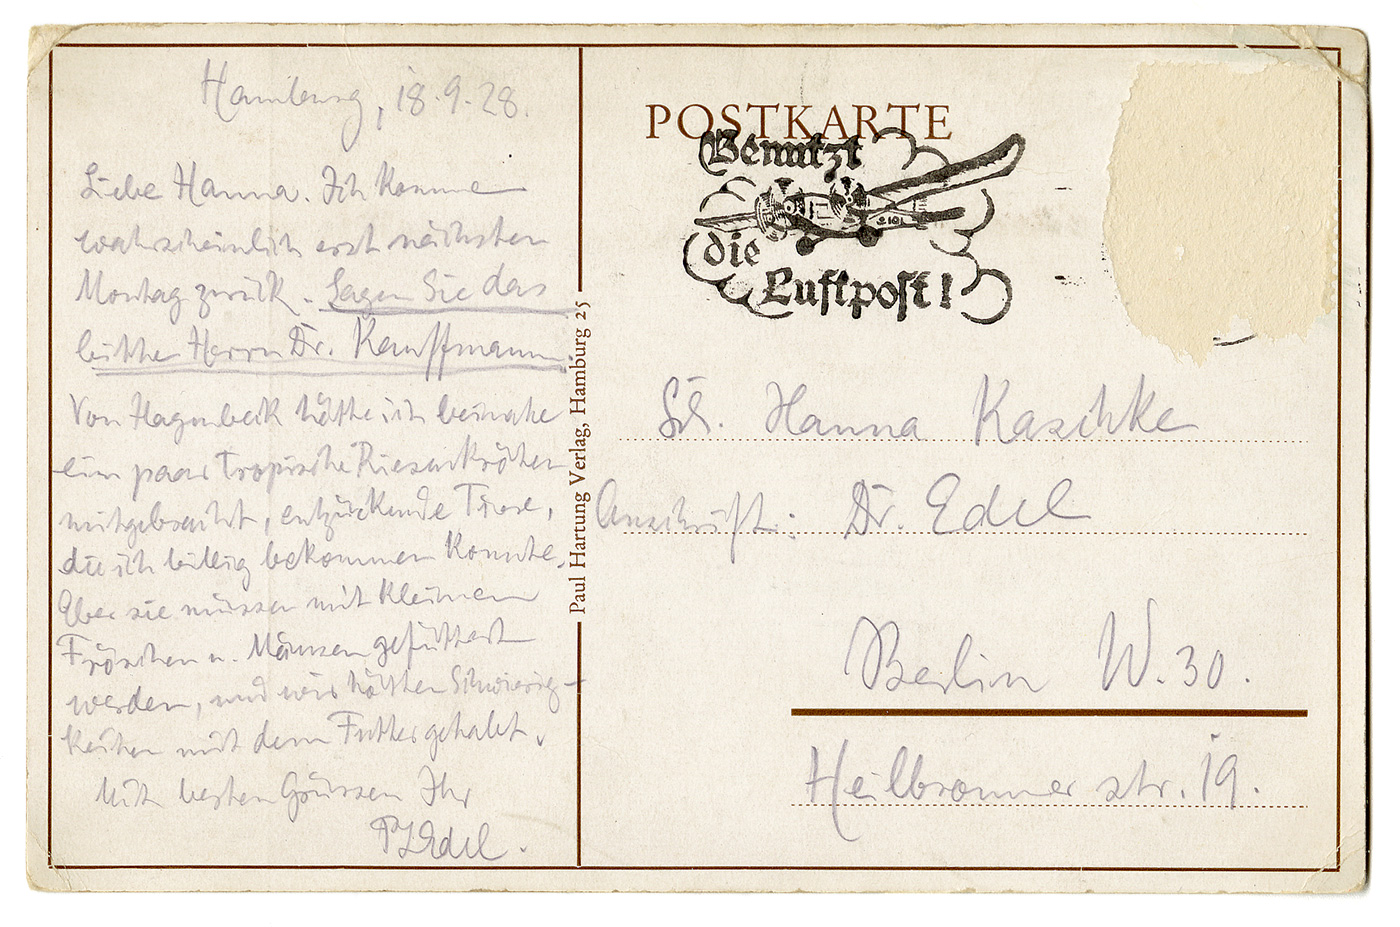 Hamburg, 18.9.28.
Liebe Hanna. Ich komme
wahrscheinlich erst nächsten
Montag zurück. Sagen Sie das
bitte Herrn Dr. Kauffmann.
Von Hagenbeck hätte ich beinahe
ein paar tropische Riesenkröten
mitgebracht, entzückende Tiere,
die ich billig bekommen konnte.
Aber sie müssen mit kleinen
Fröschen u. Mäusen gefüttert
werden, und wir hätten Schwierig-
keiten mit dem Futter gehabt.
Mit besten Grüssen Ihr
Edel.
Paul Hartung Verlag, Hamburg 25
POSTKARTE
Benutzt
die
Luftpost!
Hanna Kaschke
Anschrift: Dr. Edel
Berlin W. 30.
Heilbronner str. 19.